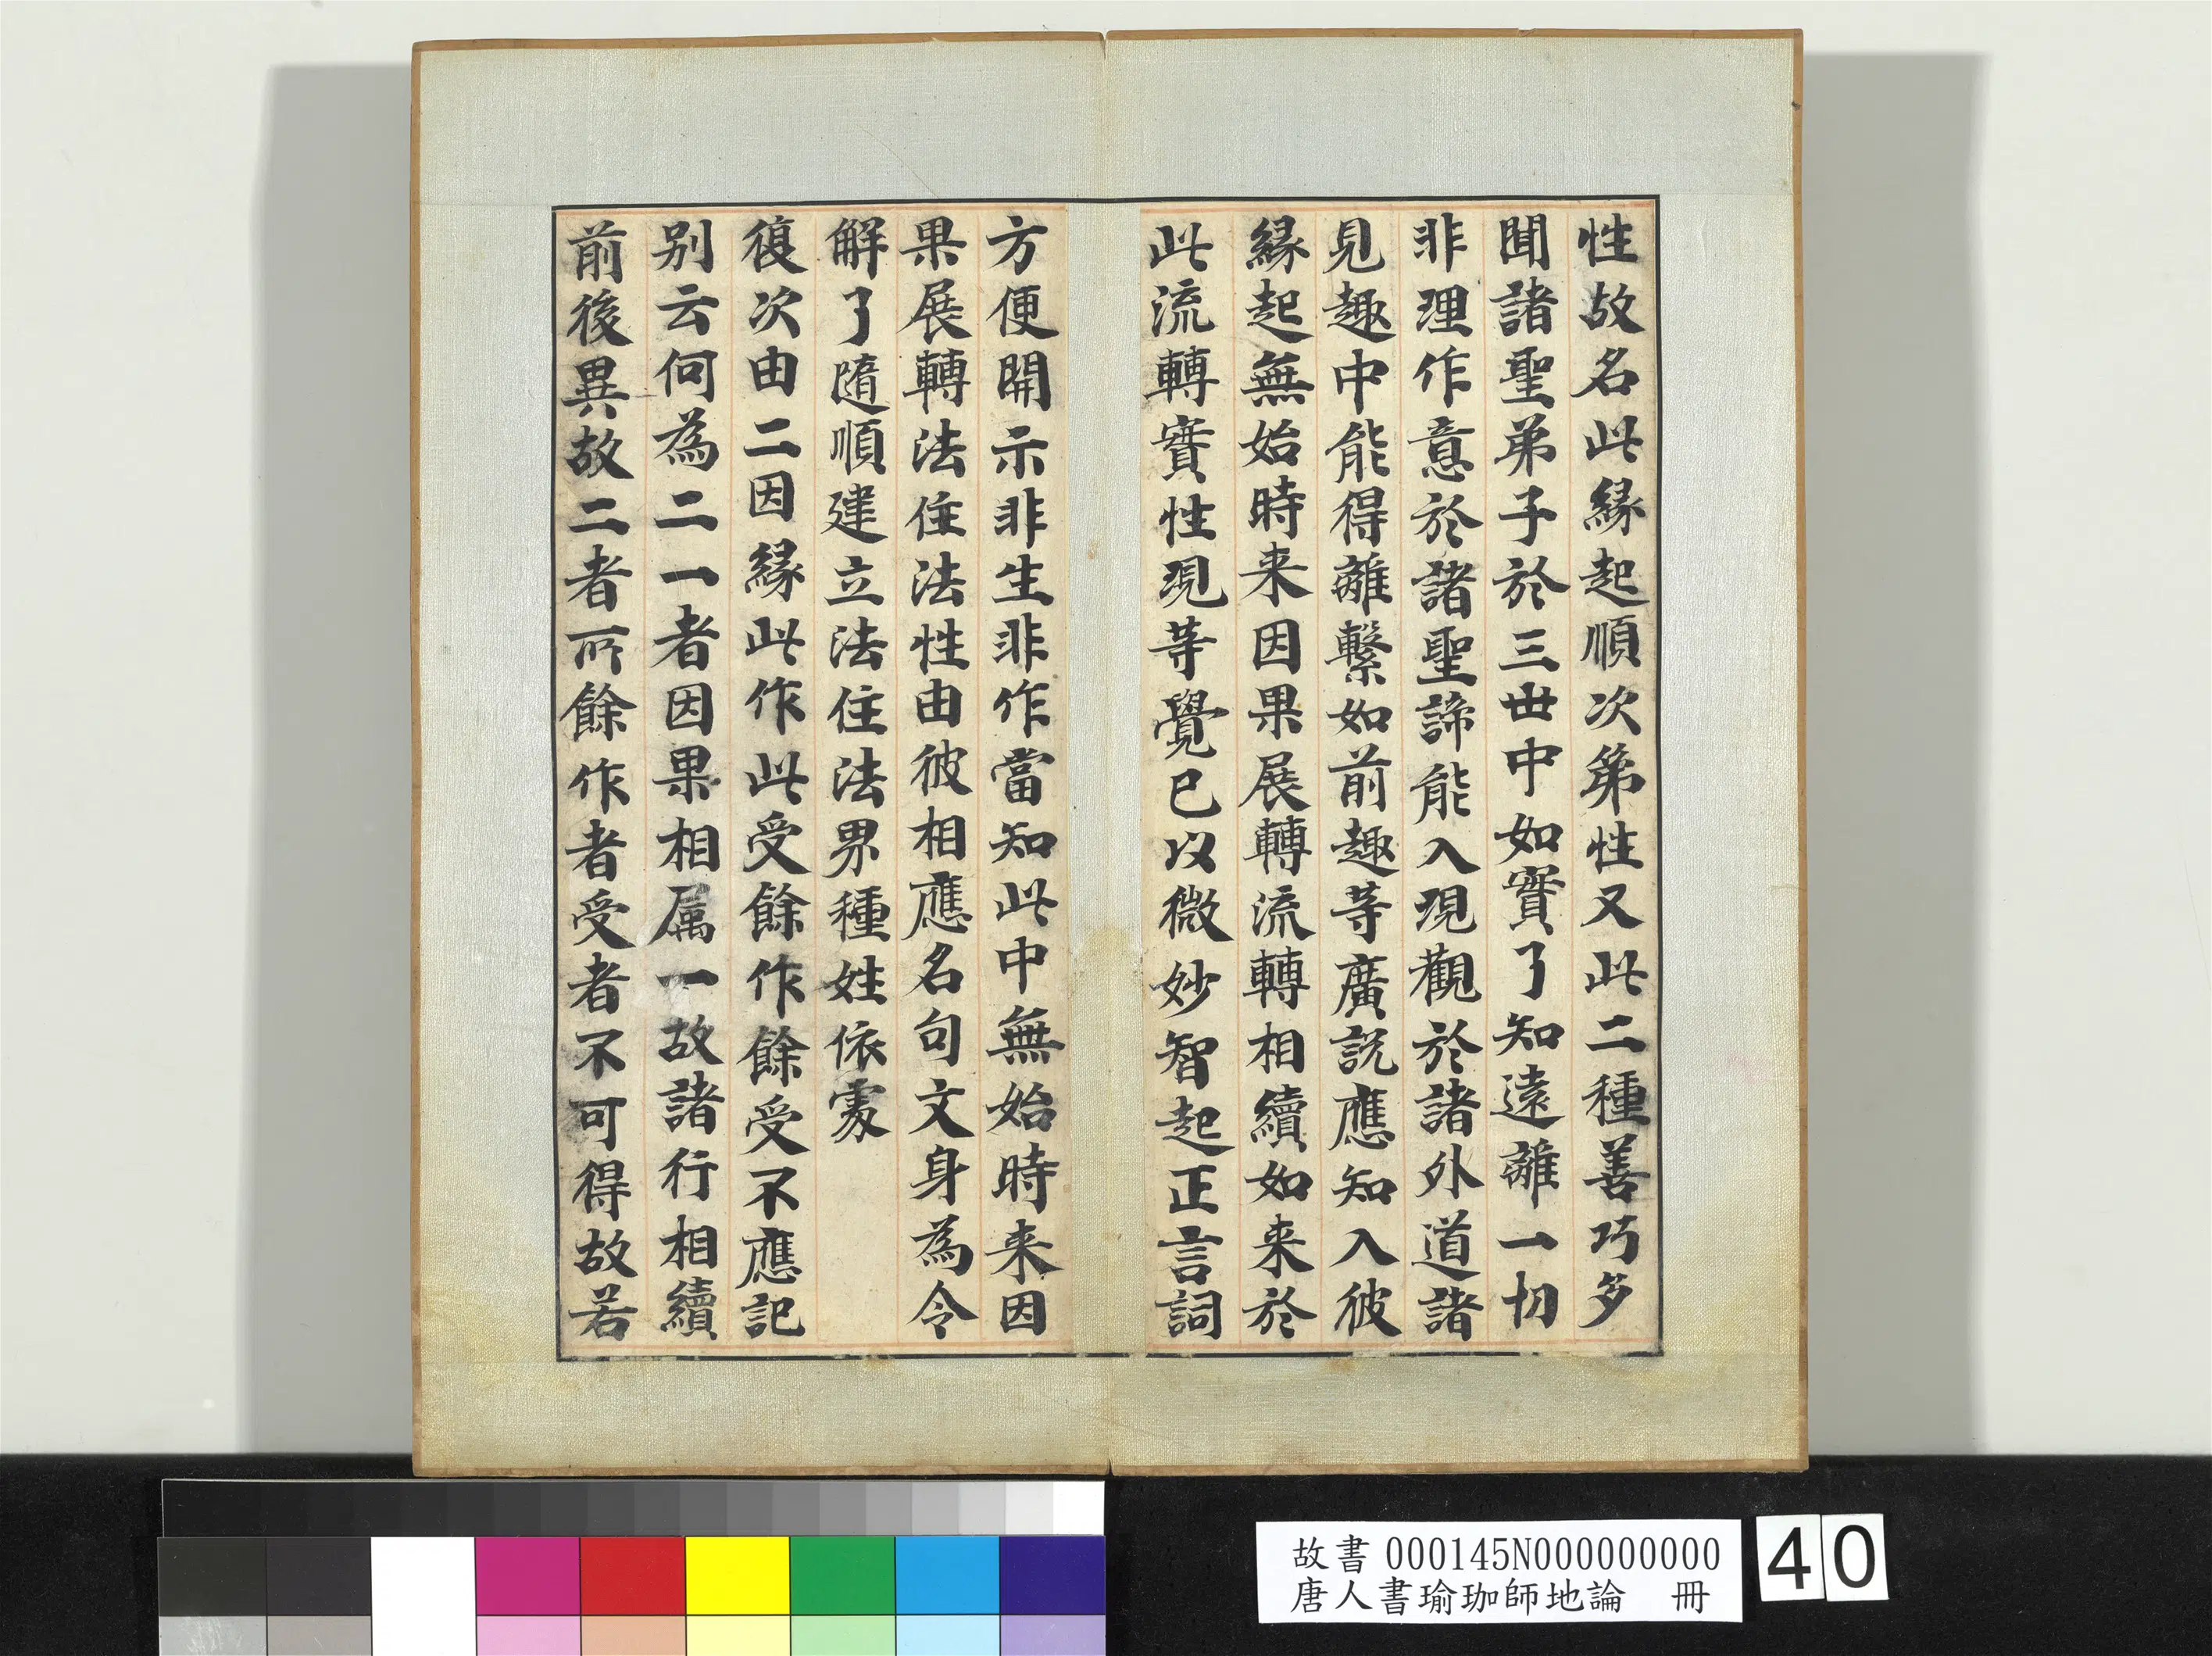 性故名此緣起順次第性又此二種善巧多
聞諸聖弟子於三世中如實了知遠離一切
非理作意於諸聖諦能入現觀於諸外道諸
見趣中能得離繫如前趣等廣說應知入彼
緣起無始時来因果展轉流轉相續如来於
此流轉實性現等覺已以微妙智起正言詞
方便開示非生非作當知此中無始時来因
果展轉法住法性由彼相應名句文身為令
解了隨順建立法住法界種姓依處
復次由二因緣此作此受餘作餘受不應記
别云何為二一者因果相属一故諸行相續
前後異故二者所餘作者受者不可得故若
故書 000145N000000000
唐人書瑜珈師地論 冊
40